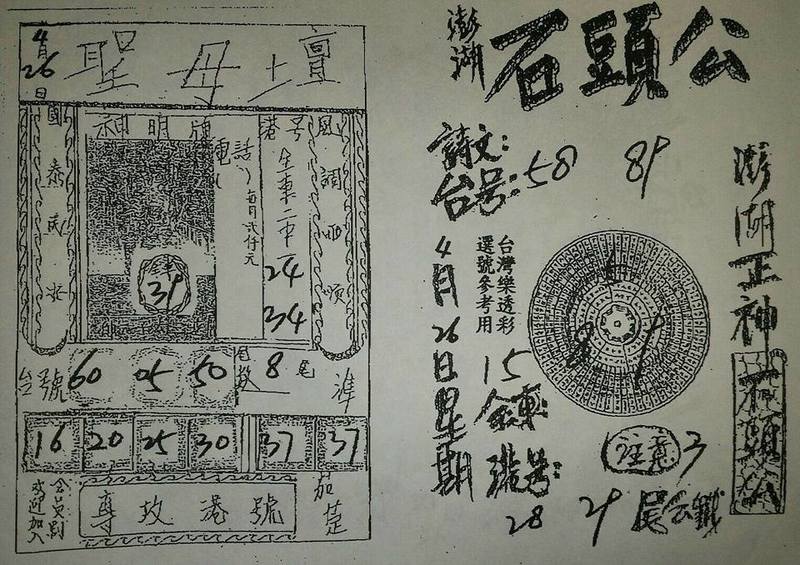 4月26日
聖母壇
國泰民安
神明牌
港号
風調雨順
電話:
每月貳仟元
全車二中二
24
34
39
台號 60 05 50 尾數 8尾 准
16 20 25 30 37 37
會員制
歡迎加入
專攻港號
茄萣
澎湖
石頭公
詩文:
台号: 58 89
4月26日星期
台灣樂透彩
選號參考用
15
全車:
港号:
28 29
注意 3尾公鐵
澎湖正神
石頭公